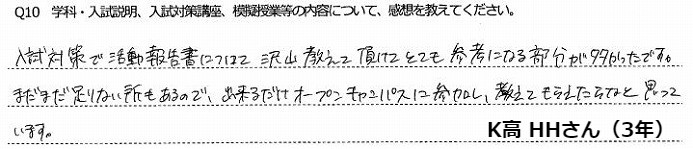 Q10 学科・入試説明、入試対策講座、模擬授業等の内容について、感想を教えてください。
入試対策で活動報告書について沢山教えて頂けてとても参考になる部分が多かったです。
まだまだ足りない所もあるので、出来るだけオープンキャンパスに参加し、教えてもらえたらなと思って
います。
K高 HHさん（3年）